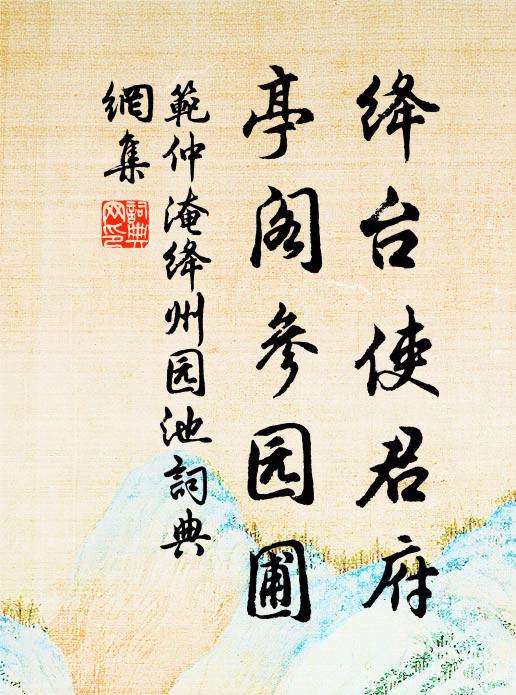 绛台使君府
亭阁参园圃
範仲淹绛州园池詞典
網集
詞典
网印